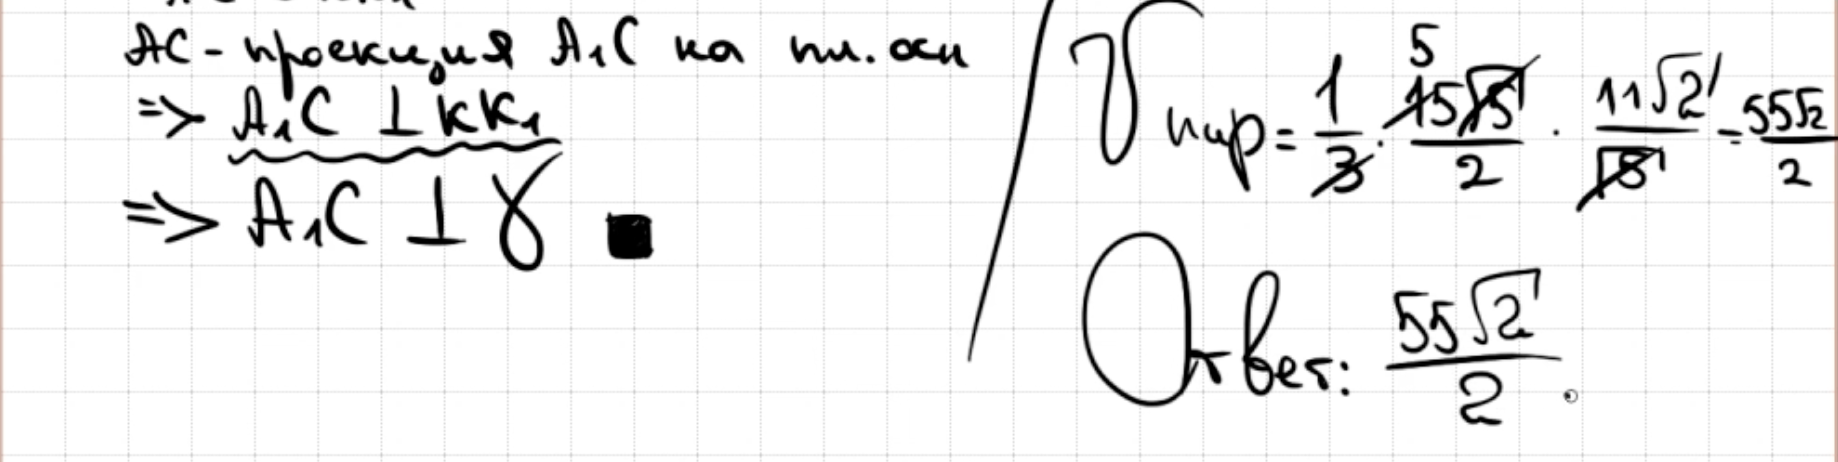 AC - проекция A₁C на пл. осн
=> A₁C ⊥ KK₁
=> A₁C ⊥ γ ■
Vпир = 1/3 · 5 15√5/2 · 11√2/√5 = 55√2/2
Ответ: 55√2/2.